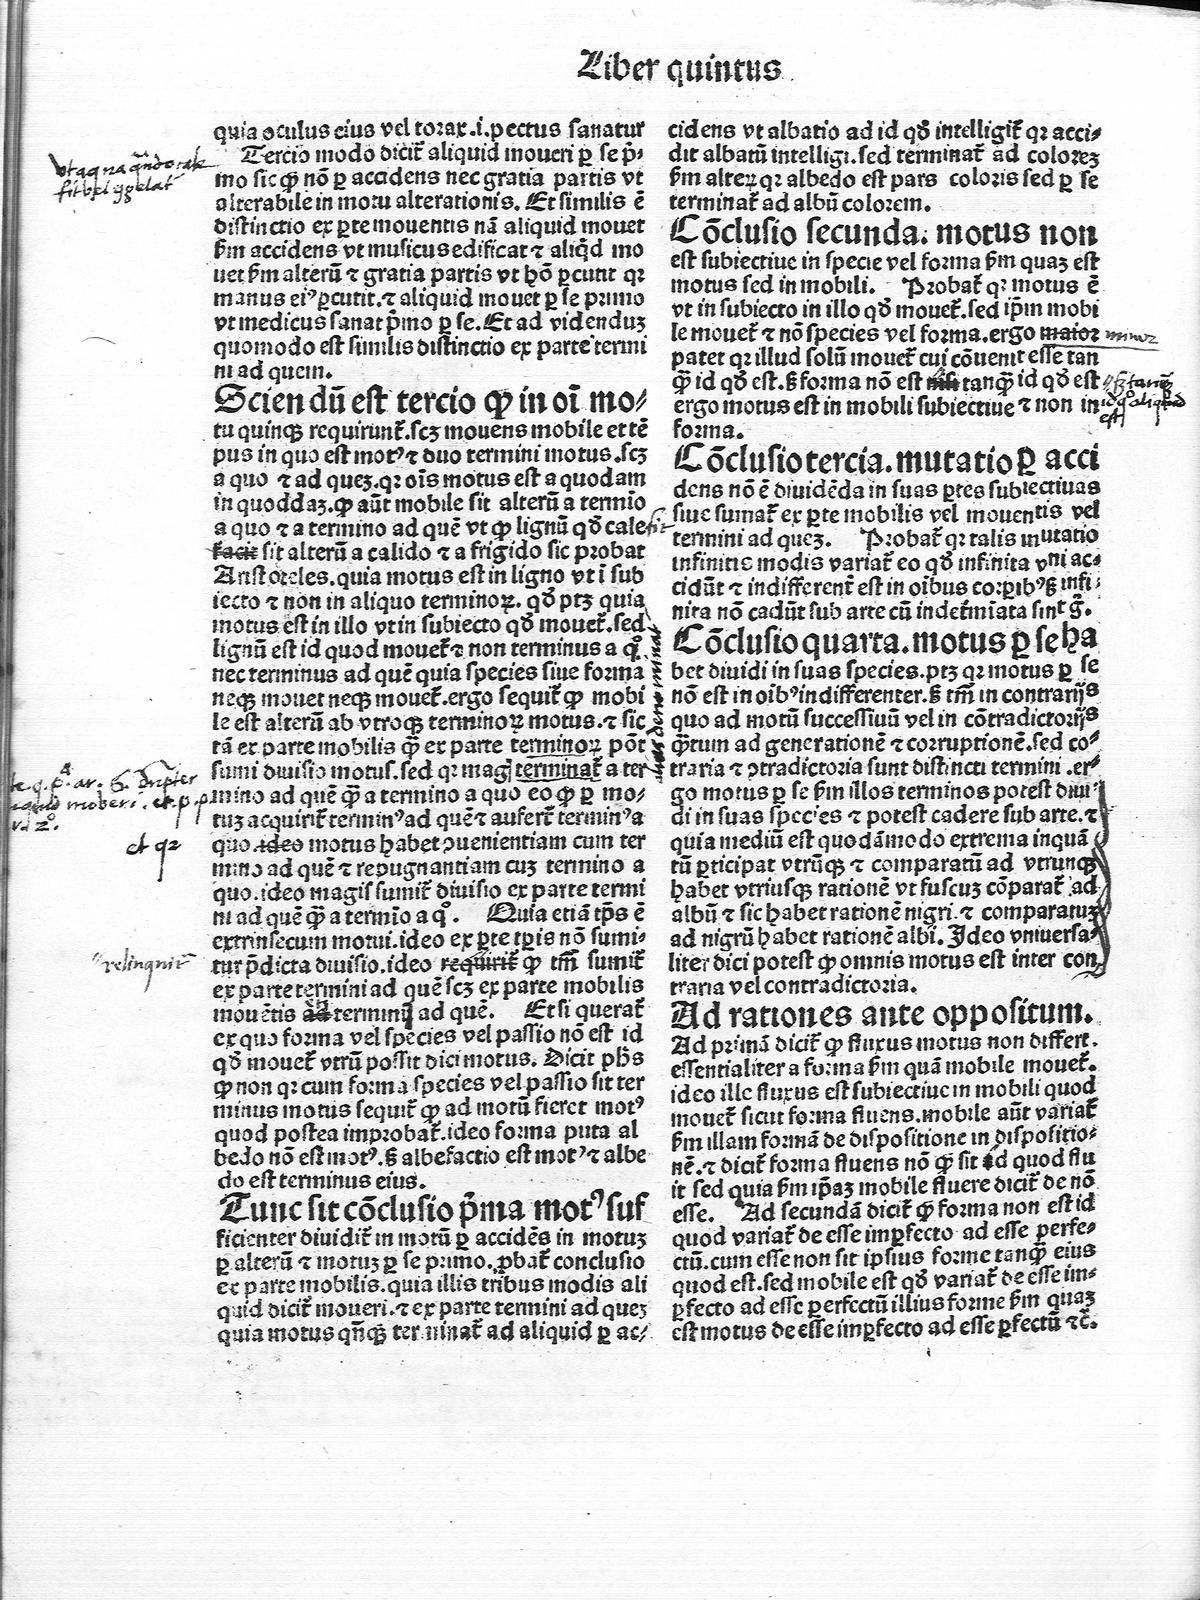 Liber quintus
quia oculus eius vel torax .i. pectus sanatur
Tercio modo dicit̄ aliquid moueri ꝑ se p̄i-
mo sic ꝙ nō ꝑ accidens nec gratia partis vt
alterabile in motu alterationis. Et similis ē
distinctio ex ꝑte mouentis nā aliquid mouet
ẜm accidens vt musicus edificat ⁊ aliqd̄ mo
uet ẜm alterū ⁊ gratia partis vt hō ꝑcutit qꝛ
manus eiꝰ ꝑcutit. ⁊ aliquid mouet ꝑ se primo
vt medicus sanat p̄mo ꝑ se. Et ad videnduꝫ
quomodo est similis distinctio ex parte termi
ni ad quem.
Sciendū est tercio ꝙ in oī mo-
tu quinqꝫ requirunt̄. scꝫ mouens mobile et tē
pus in quo est motꝰ ⁊ duo termini motus. scꝫ
a quo ⁊ ad queꝫ. qꝛ oīs motus est a quodam
in quoddaꝫ. ꝙ aūt mobile sit alterū a termīo
a quo ⁊ a termino ad quē vt ꝙ lignū qd̄ cale
facit sit alterū a calido ⁊ a frigido sic probat
Aristoteles. quia motus est in ligno vt ī sub
iecto ⁊ non in aliquo terminoꝝ. qd̄ ptꝫ quia
motus est in illo vt in subiecto qd̄ mouet̄. sed
lignū est id quod mouet̄ ⁊ non terminus a qͦ
nec terminus ad quē quia species siue forma
neqꝫ mouet neqꝫ mouet̄. ergo sequit̄ ꝙ mobi
le est alterū ab vtroqꝫ terminoꝝ motus. ⁊ sic
tā ex parte mobilis ꝙ̄ ex parte terminoꝝ pōt
sumi diuisio motus. sed qꝛ mag terminat̄ a ter
mino ad quē ꝙ̄ a termino a quo eo ꝙ ꝑ mo-
tuꝫ acquirit̄ terminꝰ ad quē ⁊ aufert̄ terminꝰ a
quo. ideo motus habet ꝯuenientiam cum ter
mino ad quē ⁊ repugnantiam cuꝫ termino a
quo. ideo magis sumit̄ diuisio ex parte termi
ni ad quē ꝙ̄ a termīo a qͦ. Quia etiā tp̄s ē
extrinsecum motui. ideo ex ꝑte tp̄is nō sumi-
tur p̄dicta diuisio. ideo requirit̄ ꝙ tm̄ sumit̄
ex parte termini ad quē scꝫ ex parte mobilis
mouētis ad terminū ad quē. Et si querat̄
ex quo forma vel species vel passio nō est id
qd̄ mouet̄ vtrū possit dici motus. Dicit ph̄s
ꝙ non qꝛ cum forma species vel passio sit ter
minus motus sequit̄ ꝙ ad motū fieret motꝰ
quod postea improbat̄. ideo forma puta al
bedo nō est motꝰ. ẜ albefactio est motꝰ ⁊ albe
do est terminus eius.
Tunc sit cōclusio p̄ma motꝰ suf
ficienter diuidit̄ in motū ꝑ accidēs in motuꝫ
ꝑ alterū ⁊ motuꝫ ꝑ se primo. ꝓbat̄ conclusio
ex parte mobilis. quia illis tribus modis ali
quid dicit̄ moueri. ⁊ ex parte termini ad queꝫ
quia motus qn̄qꝫ terminat̄ ad aliquid ꝑ ac-
cidens vt albatio ad id qd̄ intelligit̄ qꝛ acci-
dit albatū intelligi. sed terminat̄ ad coloreꝫ
ẜm alteꝝ qꝛ albedo est pars coloris sed ꝑ se
terminat̄ ad albū colorem.
Cōclusio secunda. motus non
est subiectiue in specie vel forma ẜm quaꝫ est
motus sed in mobili. Probat̄ qꝛ motus ē
vt in subiecto in illo qd̄ mouet̄. sed ip̄m mobi
le mouet̄ ⁊ nō species vel forma. ergo maior minor
patet qꝛ illud solū mouet̄ cui cōuenit esse tan
ꝙ̄ id qd̄ est. ẜ forma nō est nisi tanꝙ̄ id qd̄ est
ergo motus est in mobili subiectiue ⁊ non in
forma.
Cōclusio tercia. mutatio ꝑ acci
dens nō ē diuidēda in suas ꝑtes subiectiuas
siue sumat̄ ex ꝑte mobilis vel mouentis vel
termini ad queꝫ. Probat̄ qꝛ talis mutatio
infinitis modis variat̄ eo qd̄ infinita vni ac-
cidūt ⁊ indifferent̄ est in oībus corꝑibꝰ ẜ infi-
nita nō cadūt sub arte cū indet̄miata sint gͦ.
Cōclusio quarta. motus ꝑ se ha
bet diuidi in suas species. ptꝫ qꝛ motus ꝑ se
nō est in oībꝰ indifferenter. ẜ tm̄ in contrarijs
quo ad motū successiuū vel in cōtradictorijs
ꝙ̄tum ad generationē ⁊ corruptionē. sed co-
traria ⁊ ꝯtradictoria sunt distincti termini. er-
go motus ꝑ se ẜm illos terminos potest diui-
di in suas species ⁊ potest cadere sub arte. ⁊
quia mediū est quodāmodo extrema inquā
tū ꝑticipat vtrūqꝫ ⁊ comparatū ad vtrunqꝫ
habet vtriusqꝫ rationē vt fuscuꝫ cōparat̄ ad
albū ⁊ sic habet rationē nigri. ⁊ comparatuꝫ
ad nigrū habet rationē albi. Ideo vniuersa-
liter dici potest ꝙ omnis motus est inter con
traria vel contradictoria.
Ad rationes ante oppositum.
Ad primā dicit̄ ꝙ fluxus motus non differt.
essentialiter a forma ẜm quā mobile mouet̄.
ideo ille fluxus est subiectiue in mobili quod
mouet̄ sicut forma fluens. mobile aūt variat̄
ẜm illam formā de dispositione in dispositio-
nē. ⁊ dicit̄ forma fluens nō ꝙ sit id quod flu
it sed quia ẜm ip̄aꝫ mobile fluere dicit̄ de nō
esse. Ad secundā dicit̄ ꝙ forma non est id
quod variat̄ de esse imꝑfecto ad esse perfe-
ctū. cum esse non sit ipsius forme tanꝙ̄ eius
quod est. sed mobile est qd̄ variat̄ de esse im-
ꝑfecto ad esse perfectū illius forme ẜm quaꝫ
est motus de esse imꝑfecto ad esse ꝑfectū ⁊c̄.
et qꝛ
relinquit̄